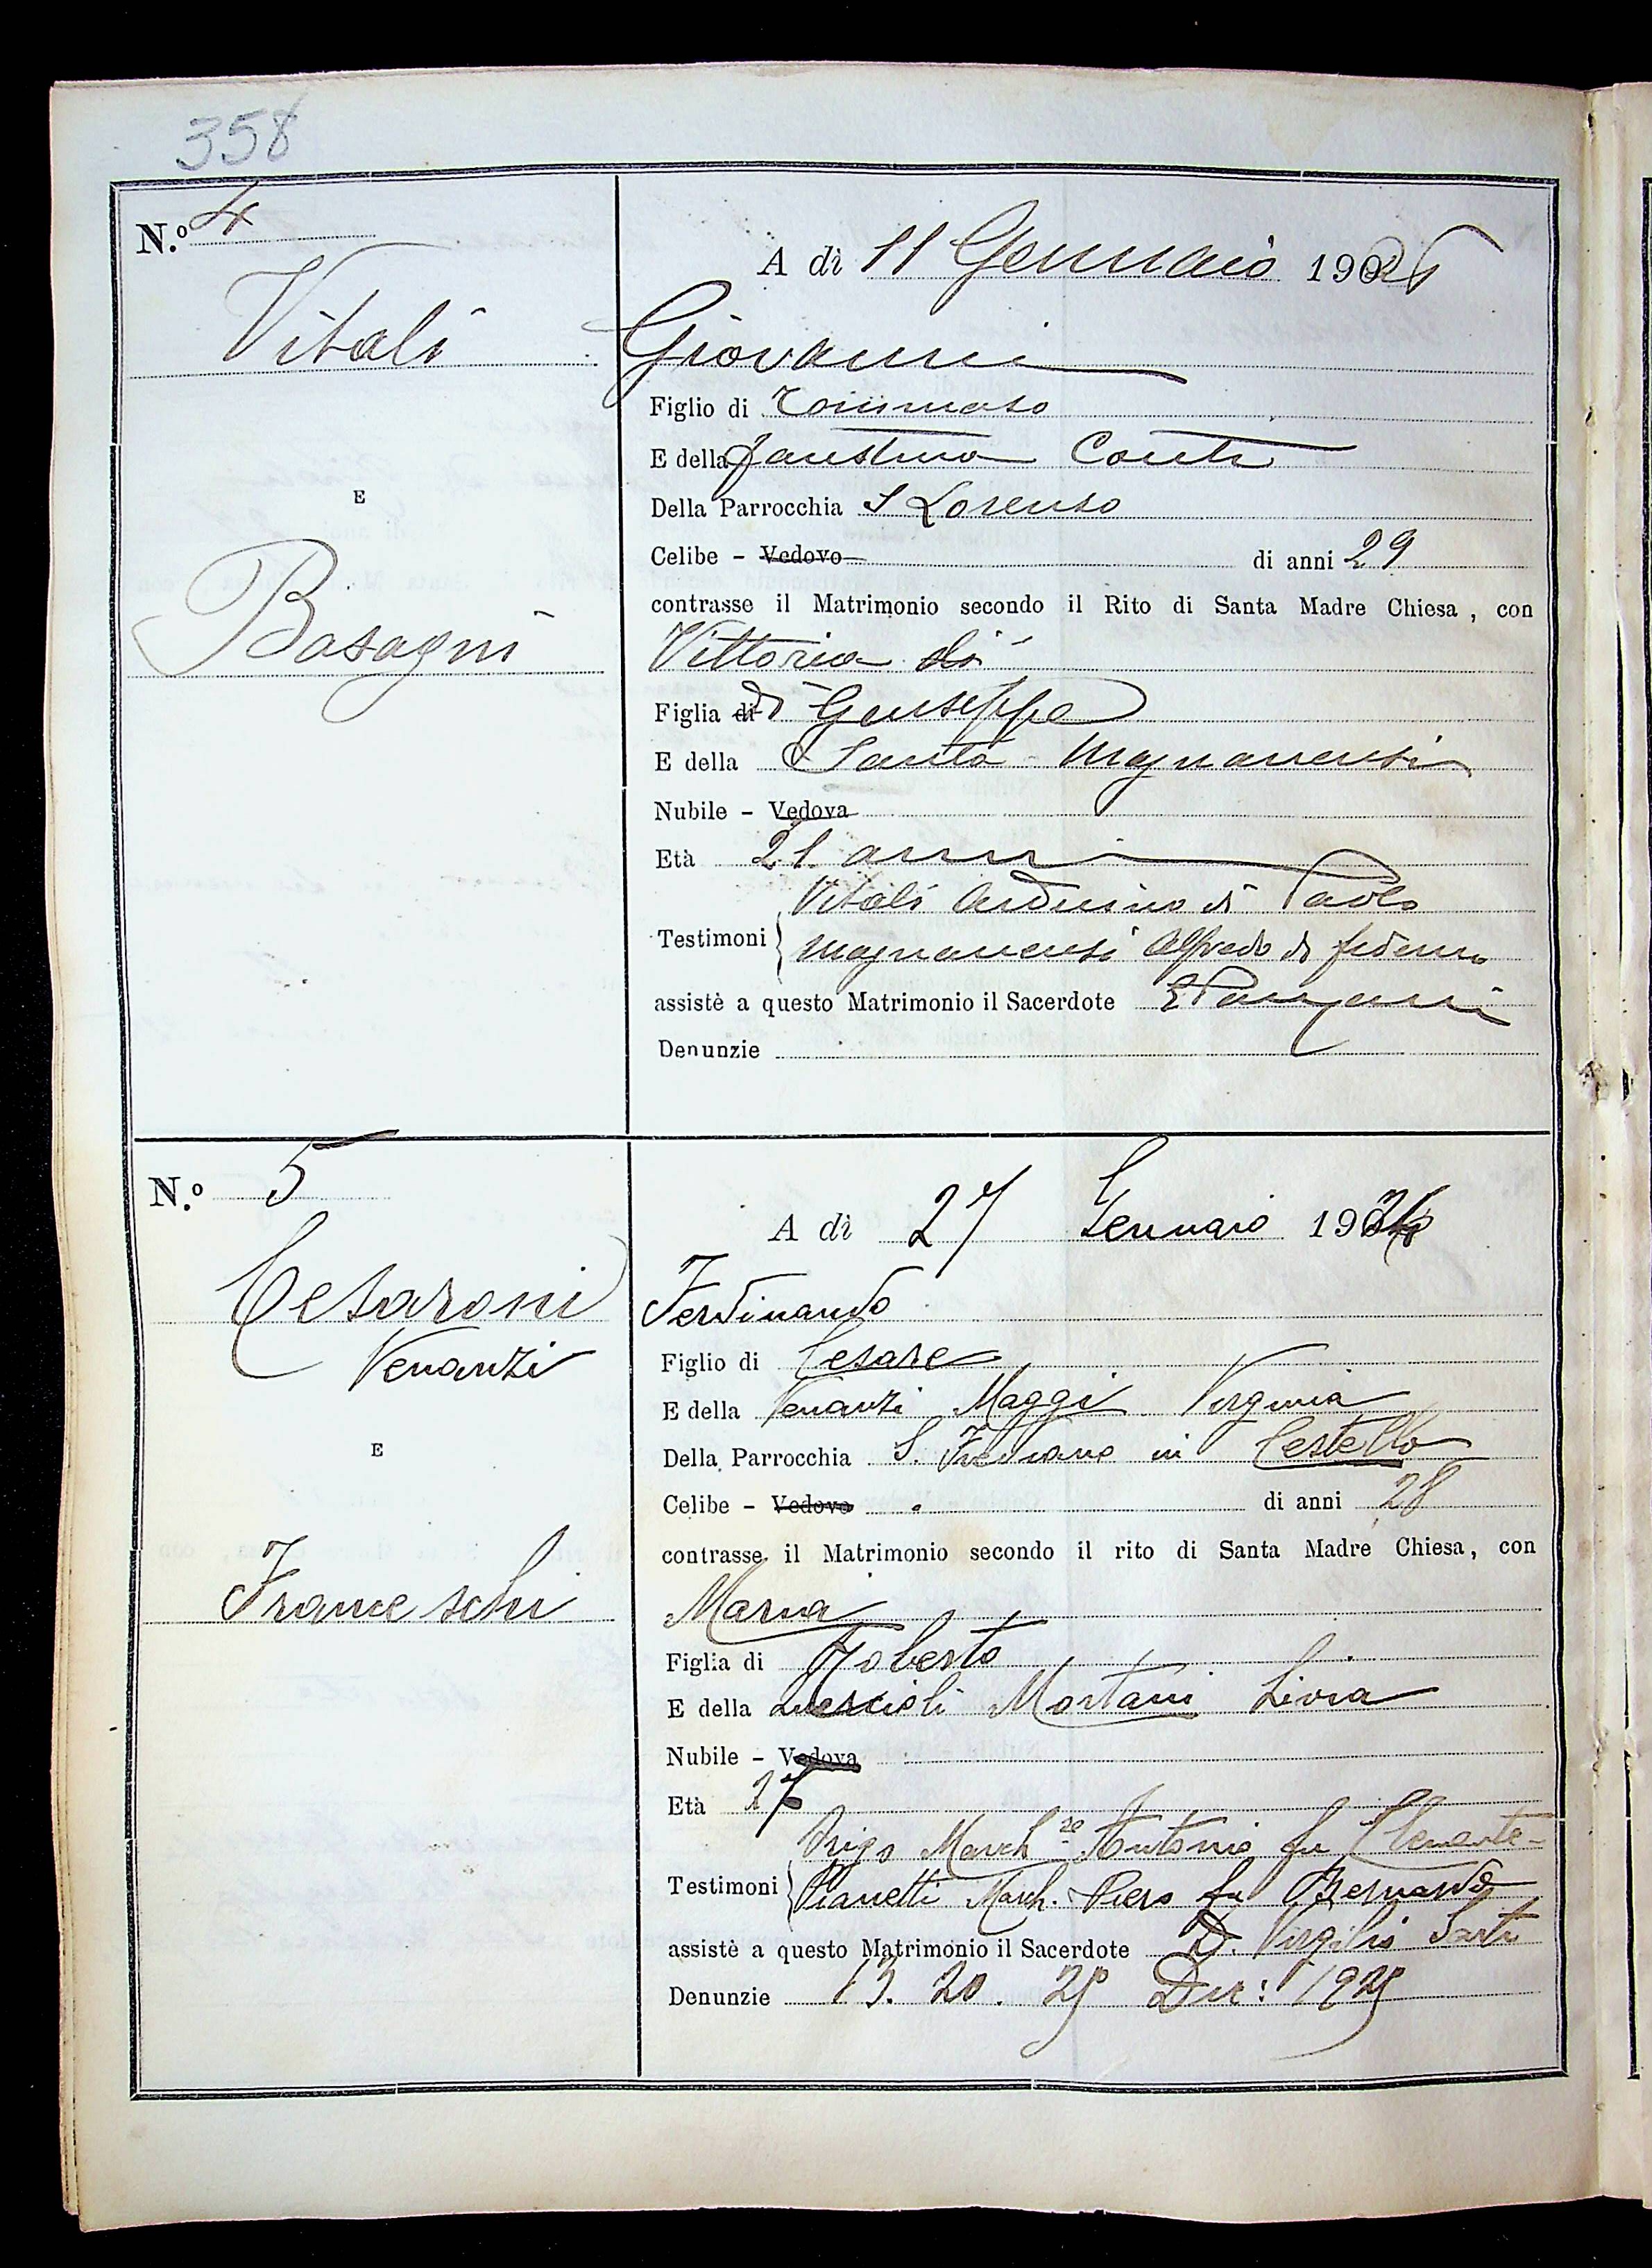 358
N.º 4
A dì 11 Gennaio 1926
Vitali
Giovanni
Figlio di Tommaso
E della Faustina Conti
Della Parrocchia S Lorenzo
E
Celibe - Vedovo di anni 29
contrasse il Matrimonio secondo il Rito di Santa Madre Chiesa, con
Basagni
Vittoria di
Figlia di di Giuseppe
E della Santa Magnanensi
Nubile - Vedova
Età 21 anni
Vitali Arduino di Paolo
Testimoni
Magnanensi Alfredo di
assistè a questo Matrimonio il Sacerdote
Denunzie
N.º 5
A dì 27 Gennaio 1926
Cesaroni
Ferdinando
Venanzi
Figlio di Cesare
E della Venanzi Maggi Virginia
Della Parrocchia S. Frediano in Cestello
E
Celibe - Vedovo di anni 28
contrasse il Matrimonio secondo il rito di Santa Madre Chiesa, con
Franceschi
Maria
Figlia di Roberto
E della Livia
Nubile - Vedova
Età 27
March.se Antonio fu Clemente
Testimoni
Pianetti March. Piero fu Bernardo
assistè a questo Matrimonio il Sacerdote D. Virgilio Sarti
Denunzie 13. 20. 25 Dic: 1925